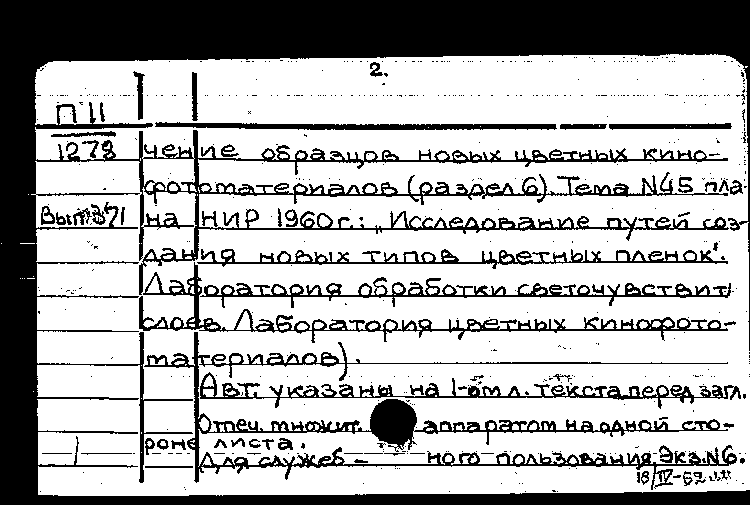 2.
П 11
1278 чение образцов новых цветных кино-
фотоматериалов (раздел 6). Тема N45 пла
Вып.371 на НИР 1960г.: „Исследование путей соз-
дания новых типов цветных пленок".
Лаборатория обработки светочувствит/
слоев. Лаборатория цветных кинофото-
материалов).
Авт. указаны на 1-ом л. текста перед загл.
Отпеч. множит. аппаратом на одной сто-
роне листа.
Для служеб- ного пользования. Экз.N6.
18/IV-62